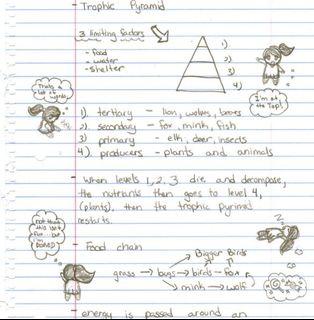 - Trophic Pyramid
3 limiting factors
- food
- water
- shelter
1)
2)
3)
4)
That's a lot of words
I'm at the Top!
1). tertiary - lion, wolves, bears
2) secondary - fox, mink, fish
3) primary - elk, deer, insects
4). producers - plants and animals
- When levels 1, 2, 3 die and decompose,
the nutrients then goes to level 4,
(plants), then the trophic pyrimid
restarts.
not that this isn't fun... but I'm BORED
- Food chain
Bigger Birds
grass → bugs → birds → fox
→ mink → wolf
energy is passed around an